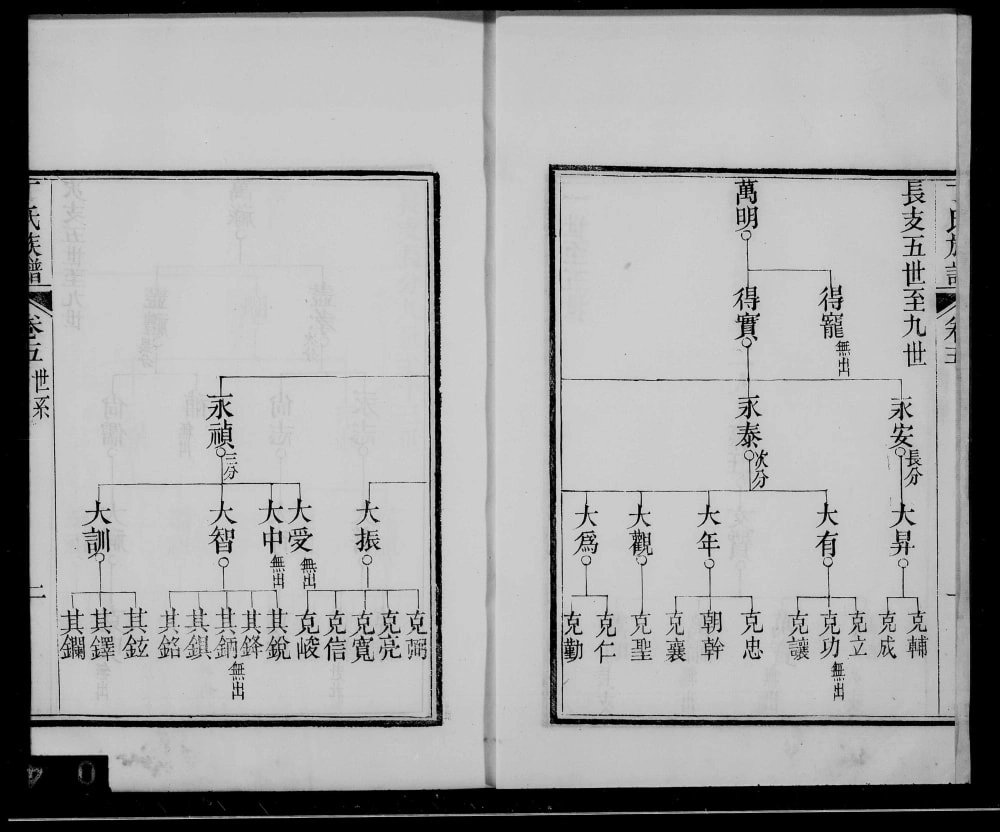 長支五世至九世
萬明
得寵 無出
得實
永安 長分
永泰 次分
大昇
大有
大年
大觀
大為
克輔
克成
克立
克功 無出
克讓
克忠
朝幹
克襄
克聖
克仁
克勤
永禎 三分
大振
大受 無出
大中 無出
大智
大訓
克弼
克亮
克寬
克信
克峻
其銳
其鋒
其鈵 無出
其鎖
其銘
其鉉
其鐸
其鑭
丁氏族譜
卷五
世系
二